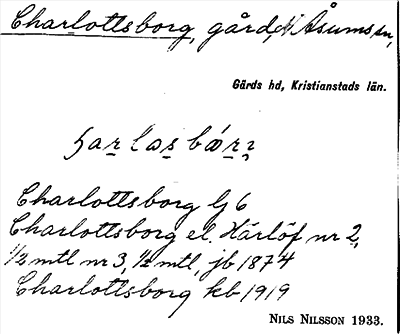 Charlottsborg, gård, N Åsums sn,
Gärds hd, Kristianstads län.
Charlottsborg Gj 6
Charlottsborg el. Härlöf nr 2,
1/2 mtl nr 3, 1/2 mtl, jb 1874
Charlottsborg kb 1919
NILS NILSSON 1933.